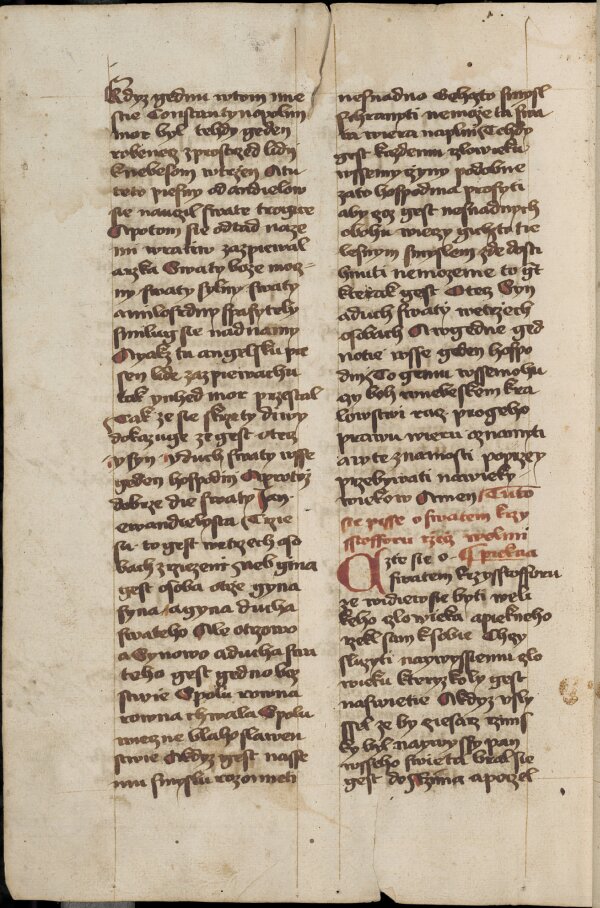 Kdyz gednu wtom mie
stie Constantynopolim
mor byl tehdy geden
robenecz zprostrzed lidij
knebesom wtrzen A tu
toto piesny od andielow
sie nauczil swate trogicze
A potom sie odtud naze
mi wratiw zazpiewal
arzka Swaty boze moc-
ny swaty sylny swaty
a milosrdny spasytely
smilug sie nad namy
A yakz tu angelsku pie
sen lide zazpiewachu
tak ynhed mor przestal
Tak ze sie skrzety diwy
dokazuge ze gest otecz
y syn y duch swaty wsse
geden hospodin A protoz
dobrze die swaty Jan
ewandielista Trzie
su to gest wtrzech oso
bach zrzezeni neb gina
gest osoba otcze gyna
syna a gyna ducha
swateho Ale otczowo
a Synowo a ducha swa
teho gest gedno boz
stwie Spolu rowna
rowna chwala Spolu
wieczne blahoslawen
stwie A kdyz gest nasse
mu smyslu rozomieti
nesnadno Gehozto smysl
schraniti nemoze ta swa
ta wiera naplni Tehdy
gest kazdemu czlowieku
wssemi czyny podobne
zato hospodina prosyti
aby coz gest nesnadnych
o bohu wierzy gichzto tie
lesnym smyslem zde dosti
hnuti nemozeme to gt
kterak gest Otecz Syn
a duch swaty wetrzech
osobach A wgedne ged
notie wsse geden hospo
din To gemu wssemohu
cy boh wnebeskem kra
lowstwi racz progeho
prawu wieru oznamyti
a wte znamosti poprzey
przebywati nawieky
wiekow Amen Tuto
sie pisse o swatem krzy
sstofforu rzecz welmi
Czte sie o piekna
swatem krzysstofforu
ze widiewsie byti weli
keho czlowieka a piekneho
rzekl sam k sobie Chczy
sluzyti naywyssiemu czlo
wieku kteryzkoly gest
naswietie A kdyz usly
ssal ze by ciesarz rzims
ky byl naywyssy pan
wsseho swieta bral sie
gest do Rzima a poczel